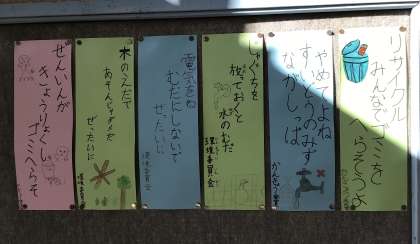 リサイクル
みんなでゴミを
へらそうよ
やめてよね
すいどうのみず
ながしっぱ
かんきょう
じゃぐちを
放っておくと
水のむだ
環境委員会
電気をね
むだにしないで
ぜったいに
環境委員会
木のえだで
あそんじゃダメだ
ぜったいに
環境委員会
ぜんいんが
きょうりょくし
ゴミへらそ